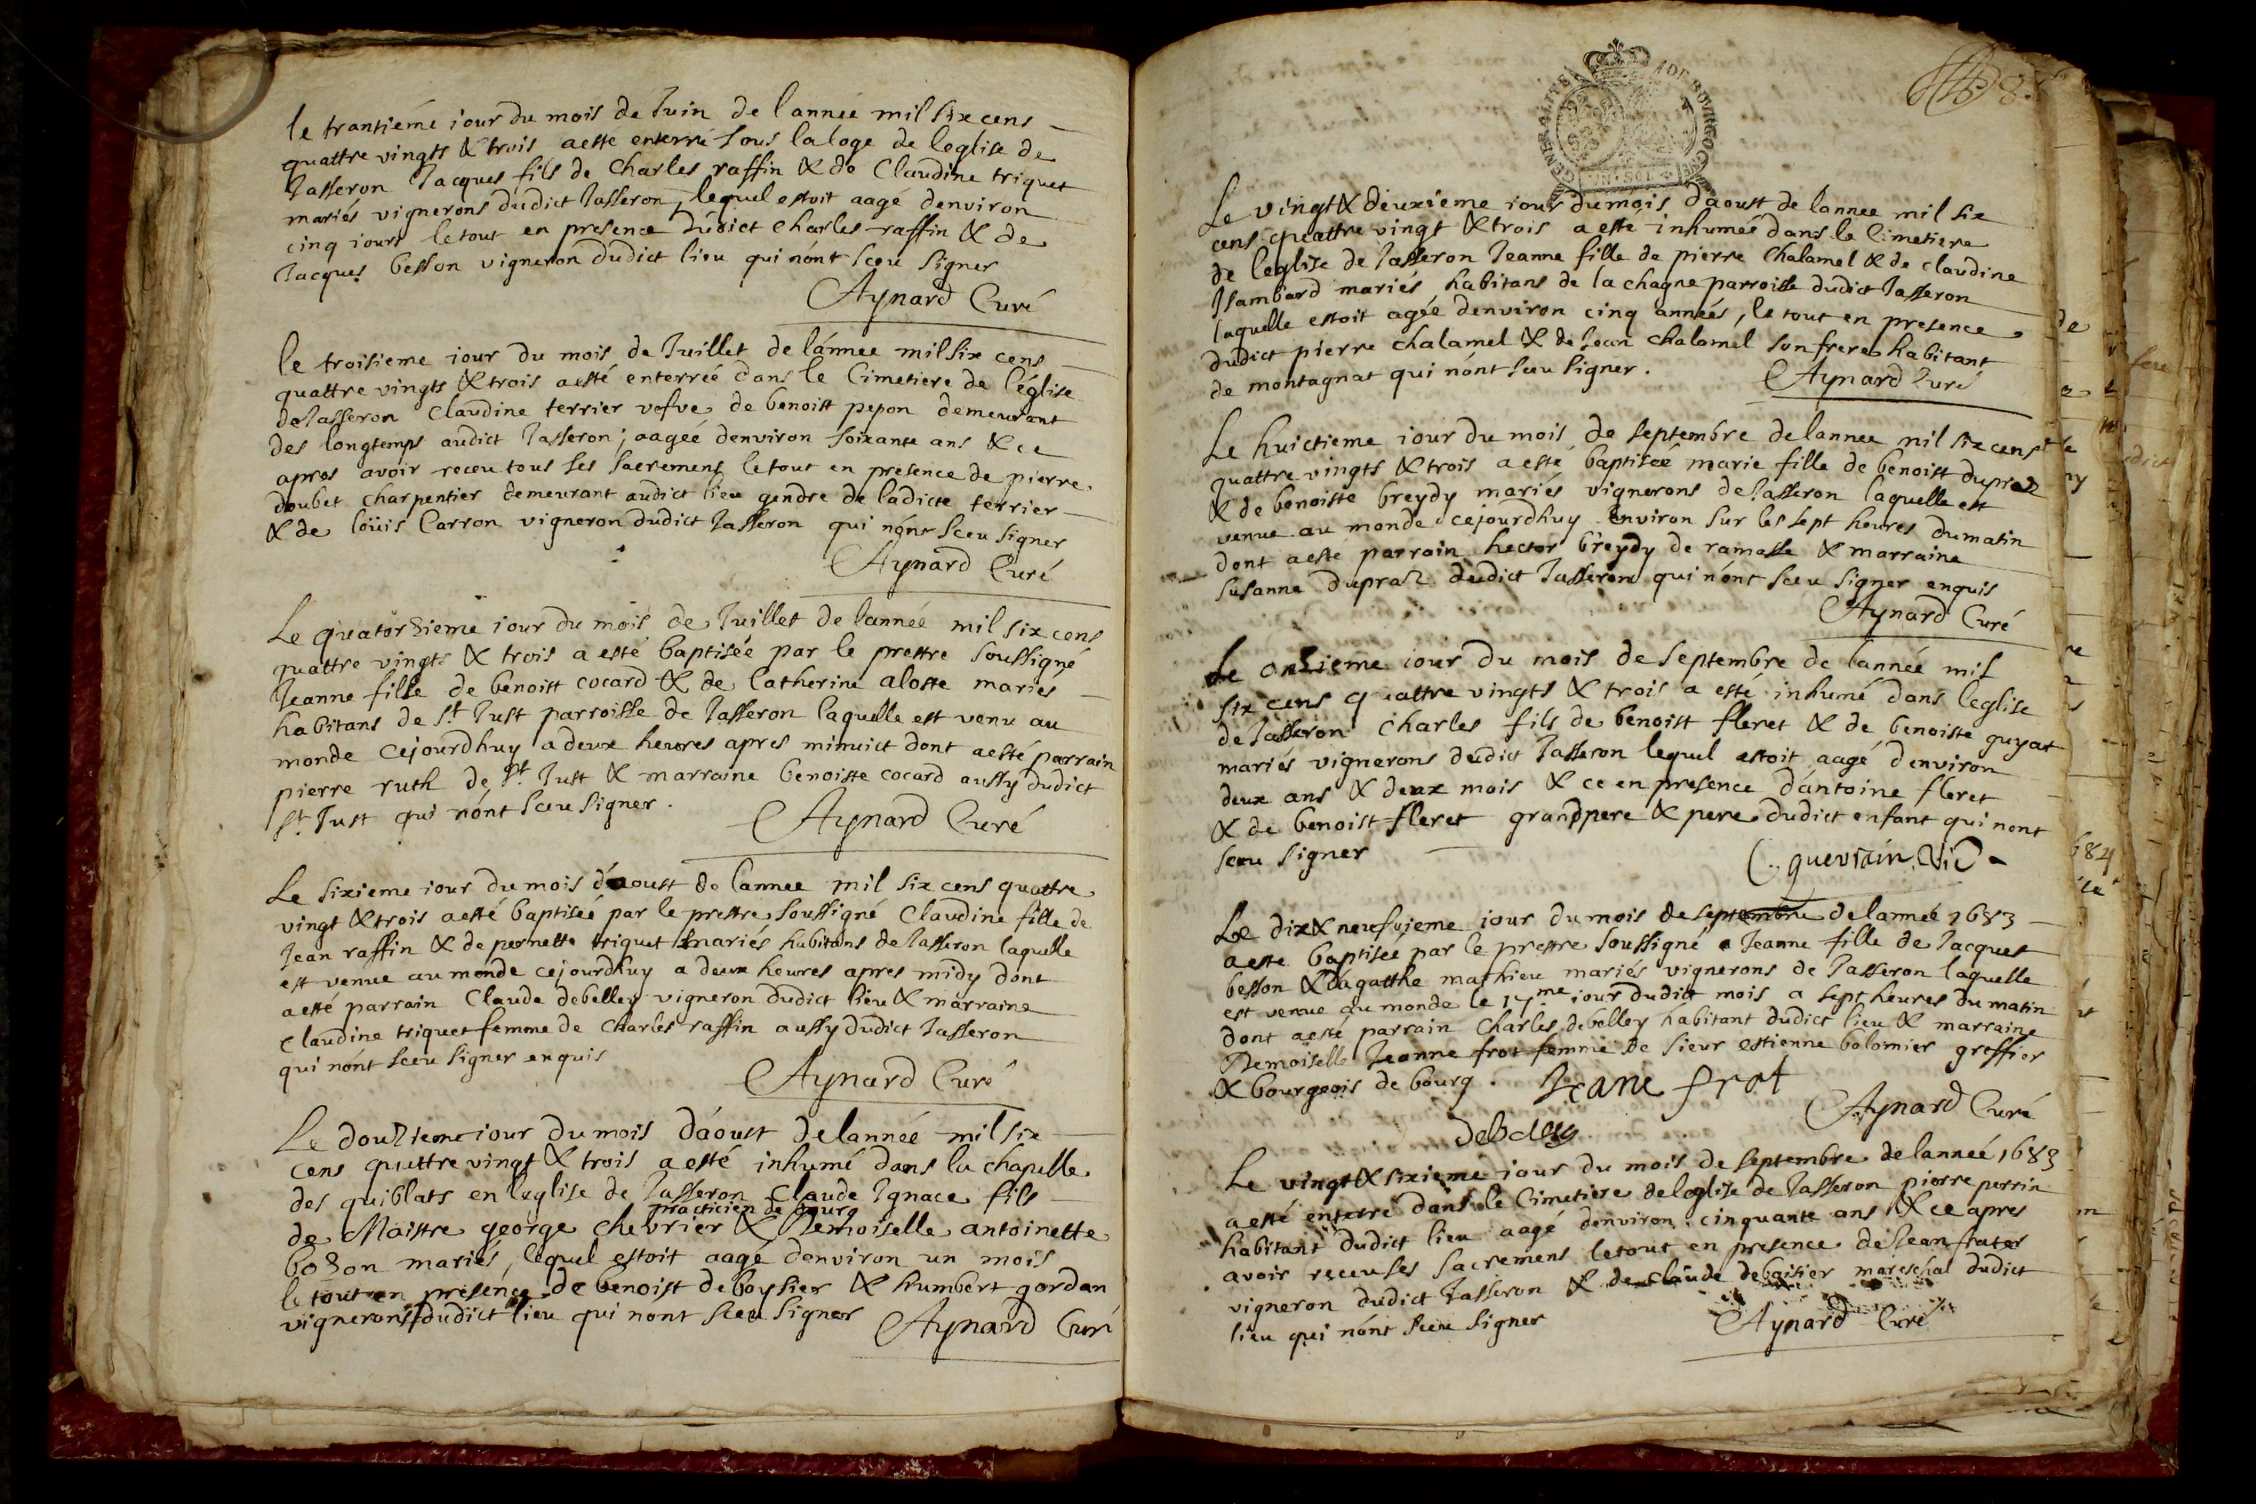 le trantiéme iour du mois de Juin de l année mil six cens
quattre vingts & trois a esté enterré sous la loge de leglise de
Jasseron Jacques fils de Charles raffin & de Claudine triquet
mariés vignerons dudict Jasseron, lequel estoit aagé denviron
cinq iours le tout en presence dudict Charles raffin & de
Jacques besson vigneron dudict lieu qui nónt sceu signer
Aynard Curé
le troisieme iour du mois de Juillet de lánnee mil six cens
quattre vingts & trois a esté enterreé dans le Cimetiere de l'église
de Jasseron Claudine terrier vefve de benoist pepon demeurant
des longtemps audict Jasseron; aageé denviron soixante ans & ce
apres avoir receu tous ses sacremens le tout en presence de pierre
doubet charpentier demeurant audict lieu gendre de ladicte terrier
& de loüis Carron vigneron dudict Jasseron qui nónt sceu signer
Aynard Curé
Le quatorzieme iour du mois de Juillet de lannéé mil six cens
quattre vingts & trois a esté baptisée par le prestre soussigné
Jeanne fille de benoist cocard & de Catherine aloste mariés
habitans de St Just parroisse de Jasseron laquelle est venu au
monde cejourdhuy a deux heures apres minuict dont a esté parrain
pierre ruth de St Just & marraine benoiste cocard aussy dudict
St Just qui nónt sceu signer.
Aynard Curé
Le sixieme iour du mois d'aoust de lannee mil six cens quattre
vingt & trois a esté baptiseé par le prestre soussigné Claudine fille de
Jean raffin & de pernette triquet mariés habitans de Jasseron laquelle
est venue au monde cejourdhuy a deux heures apres midy dont
a esté parrain Claude debelley vigneron dudict lieu & marraine
Claudine triquet femme de Charles raffin aussy dudict Jasseron
qui nónt sceu signer enquis
Aynard Curé
Le douzieme iour du mois dáoust de lannéé mil six
cens quattre vingt & trois a esté inhumé dans la chapelle
des guiblats en leglise de Jasseron Claude Ignace fils
practicien de bourg
de Maistre george chevrier & Demoiselle antoinette
bozon mariés, lequel estoit aagé denviron un mois
le tout en présence de benoist de boysier & humbert gordan
vignerons dudict lieu qui nont sceu signer
Aynard Curé
GENERALITE DE BOURGOG
Le vingt & deuxieme iour du mois daoust de lannee mil six
cens quattre vingt & trois a esté inhumeé dans le Cimetiere
de leglise de Jasseron Jeanne fille de pierre Chalamel & de claudine
Isambard mariés habitans de la chagne parroisse dudict Jasseron
laquelle estoit ageé denviron cinq années, le tout en presence
dudict pierre chalamel & de Jean chalamel son frere habitant
de montagnat qui nónt sceu signer.
Aynard Curé
Le huictieme iour du mois de septembre de lannee mil six cens
quattre vingts & trois a esté baptiseé marie fille de benoist dupraz
& de benoiste breydy mariés vignerons de Jasseron laquelle est
venue au monde cejourdhuy environ sur les sept heures du matin
dont a esté parrain hector breydy de ramasse & marraine
susanne dupraz dudict Jasseron qui nónt sceu signer enquis
Aynard Curé
Le onzieme iour du mois de septembre de lannéé mil
six cens quattre vingts & trois a esté inhumé dans leglise
de Jasseron Charles fils de benoist fleret & de benoiste guyat
mariés vignerons dudict Jasseron lequel estoit aagé denviron
deux ans & deux mois & ce en presence dántoine fleret
& de benoist fleret grandpere & pere dudict enfant qui nont
sceu signer
querrain Vic
Le dix & neufvieme iour du mois de septembre de lanneé 1683
a esté baptisée par le prestre soussigné Jeanne fille de Jacques
besson & dágatthe mathieu mariés vignerons de Jasseron laquelle
est venue au monde le 17.me iour dudict mois a sept heures du matin
dont a esté parrain Charles debelley habitant dudict lieu & marraine
Demoiselle Jeanne frot femme de sieur estienne bolomier greffier
& bourgeois de bourg.
Jeane frot
Aynard Curé
debeley
Le vingt & sixieme iour du mois de septembre de lanneé 1683
a esté enterré dans le Cimetiere de leglise de Jasseron pierre perrin
habitant dudict lieu aagé denviron cinquante ans & ce apres
avoir receu ses sacremens le tout en presence de Jean frater
vigneron dudict Jasseron & de claude deboisier mareschal dudict
lieu qui nónt sceu signer
Aynard Curé